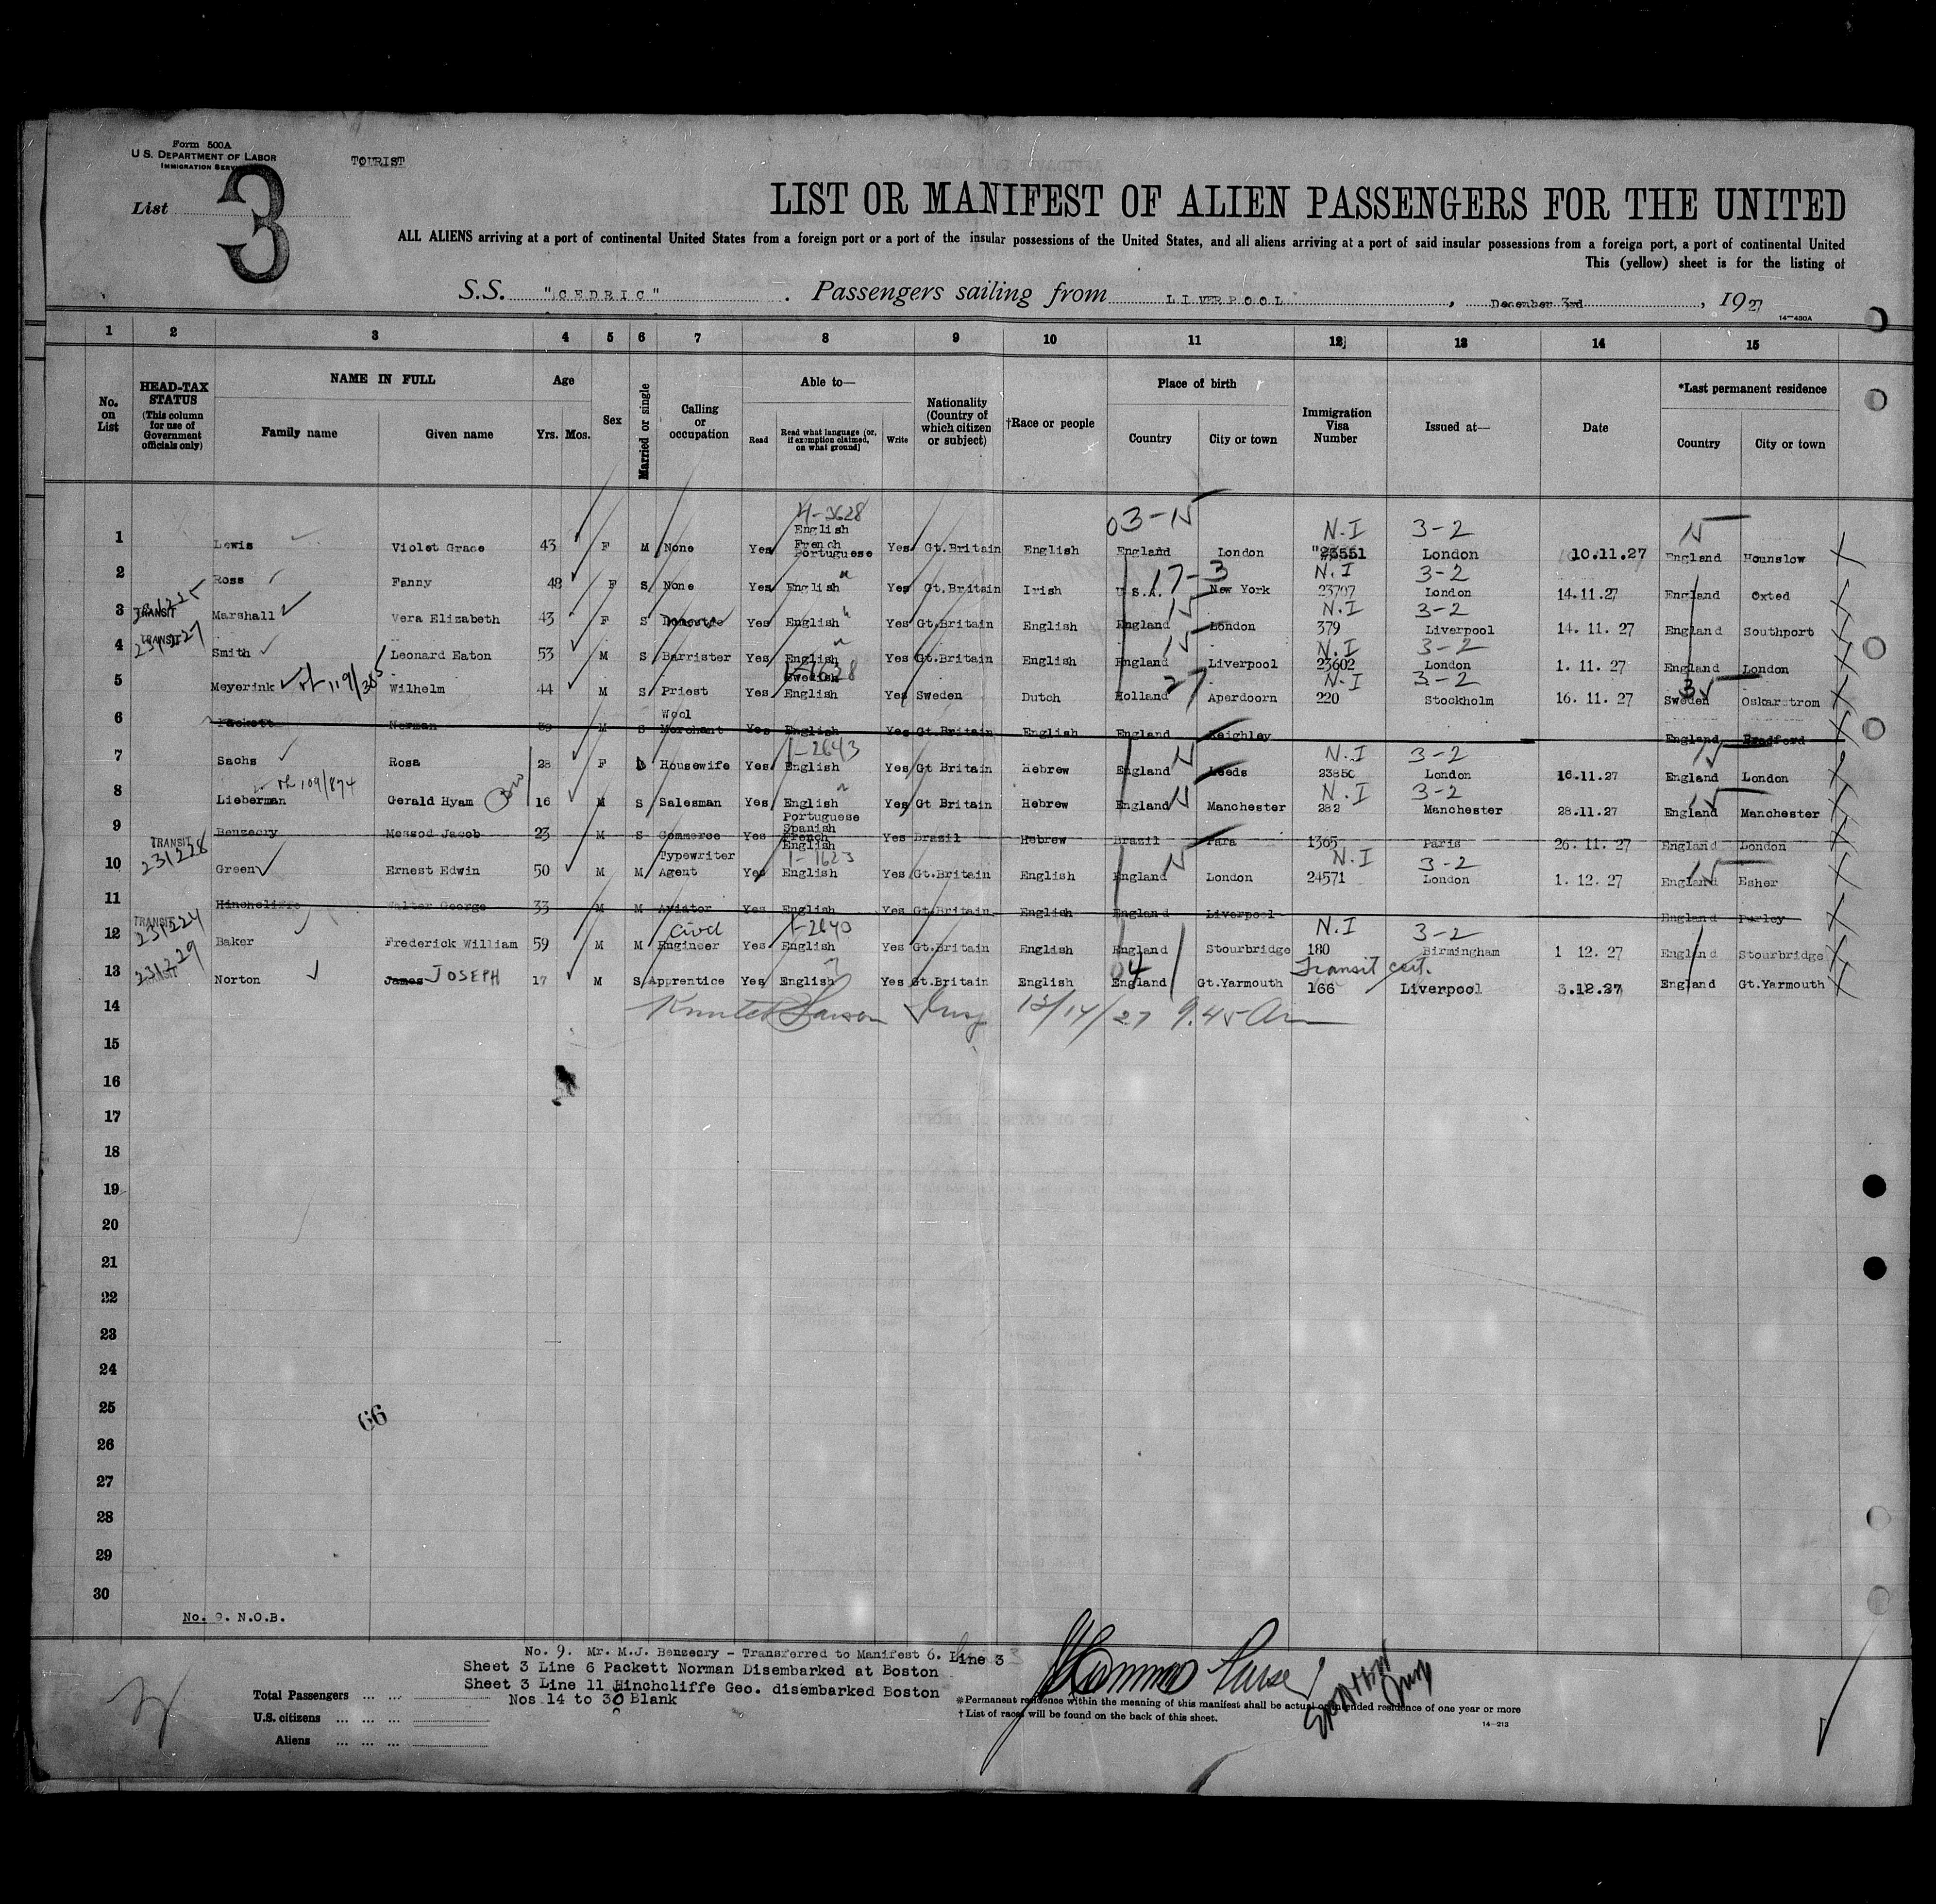 Form 500A
U.S. DEPARTMENT OF LABOR
IMMIGRATION SERVICE
TOURIST
List 3
LIST OR MANIFEST OF ALIEN PASSENGERS FOR THE UNITED
ALL ALIENS arriving at a port of continental United States from a foreign port or a port of the insular possessions of the United States, and all aliens arriving at a port of said insular possessions from a foreign port, a port of continental United
This (yellow) sheet is for the listing of
S.S. "CEDRIC" . Passengers sailing from LIVERPOOL , December 3rd , 1927
14—430A
1 2 3 4 5 6 7 8 9 10 11 12 13 14 15
No. on List
HEAD-TAX STATUS (This column for use of Government officials only)
NAME IN FULL
Family name Given name
Age
Yrs. Mos.
Sex
Married or single
Calling or occupation
Able to—
Read Read what language (or, if exemption claimed, on what ground) Write
Nationality (Country of which citizen or subject)
†Race or people
Place of birth
Country City or town
Immigration Visa Number
Issued at—
Date
*Last permanent residence
Country City or town
03-15 N.I 3-2 15
1 Lewis Violet Grace 43 F M None Yes English French Portuguese Yes Gt.Britain English England London 23551 London 10.11.27 England Hounslow
17-3 N.I 3-2
2 Ross Fanny 48 F S None Yes English Yes Gt.Britain Irish U.S.A. New York 23707 London 14.11.27 England Oxted
15 N.I 3-2
3 TRANSIT Marshall Vera Elizabeth 43 F S Domestic Yes English Yes Gt.Britain English England London 379 Liverpool 14. 11. 27 England Southport
15 N.I 3-2
4 TRANSIT Smith Leonard Eaton 53 M S Barrister Yes English Yes Gt.Britain English England Liverpool 23602 London 1. 11. 27 England London
27 N.I 3-2
5 Meyerink Wilhelm 44 M S Priest Yes Swedish English Yes Sweden Dutch Holland Aperdoorn 220 Stockholm 16. 11. 27 Sweden Oskarstrom
6 Packett Norman 39 M S Wool Merchant Yes English Yes Gt.Britain English England Keighley England Bradford
1-2643 N.I 3-2
7 Sachs Rosa 28 F Housewife Yes English Yes Gt Britain Hebrew England Leeds 23850 London 16.11.27 England London
109/874 N.I 3-2
8 Lieberman Gerald Hyam 16 M S Salesman Yes English Yes Gt Britain Hebrew England Manchester 282 Manchester 28.11.27 England Manchester
9 Benzecry Messod Jacob 23 M S Commerce Yes Portuguese Spanish French English Yes Brazil Hebrew Brazil Para 1365 Paris 26. 11. 27 England London
TRANSIT 231228 1-1623 N.I 3-2
10 Green Ernest Edwin 50 M M Typewriter Agent Yes English Yes Gt.Britain English England London 24571 London 1. 12. 27 England Esher
11 Hinchcliffe Walter George 33 M M Aviator Yes English Yes Gt.Britain English England Liverpool England Purley
TRANSIT 231224 1-2640 N.I 3-2
12 Baker Frederick William 59 M M Civil Engineer Yes English Yes Gt.Britain English England Stourbridge 180 Birmingham 1 12. 27 England Stourbridge
231229 TRANSIT 04 Transit cert.
13 Norton James JOSEPH 17 M S Apprentice Yes English Yes Gt.Britain English England Gt.Yarmouth 166 Liverpool 3.12.27 England Gt.Yarmouth
14 Insp 12/14/27 9.45 Am
15
16
17
18
19
20
21
22
23
24
25
66
26
27
28
29
30
No. 9. N.O.B.
No. 9. Mr. M.J. Benzecry - Transferred to Manifest 6. Line 3
Sheet 3 Line 6 Packett Norman Disembarked at Boston
Sheet 3 Line 11 Hinchcliffe Geo. disembarked Boston
Nos 14 to 30 Blank
Total Passengers ... ...
U.S. citizens ... ... ...
Aliens ... ... ...
*Permanent residence within the meaning of this manifest shall be actual or intended residence of one year or more
†List of races will be found on the back of this sheet.
14—213